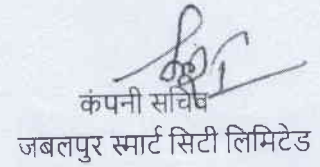 कंपनी सचिव
जबलपुर स्मार्ट सिटी लिमिटेड